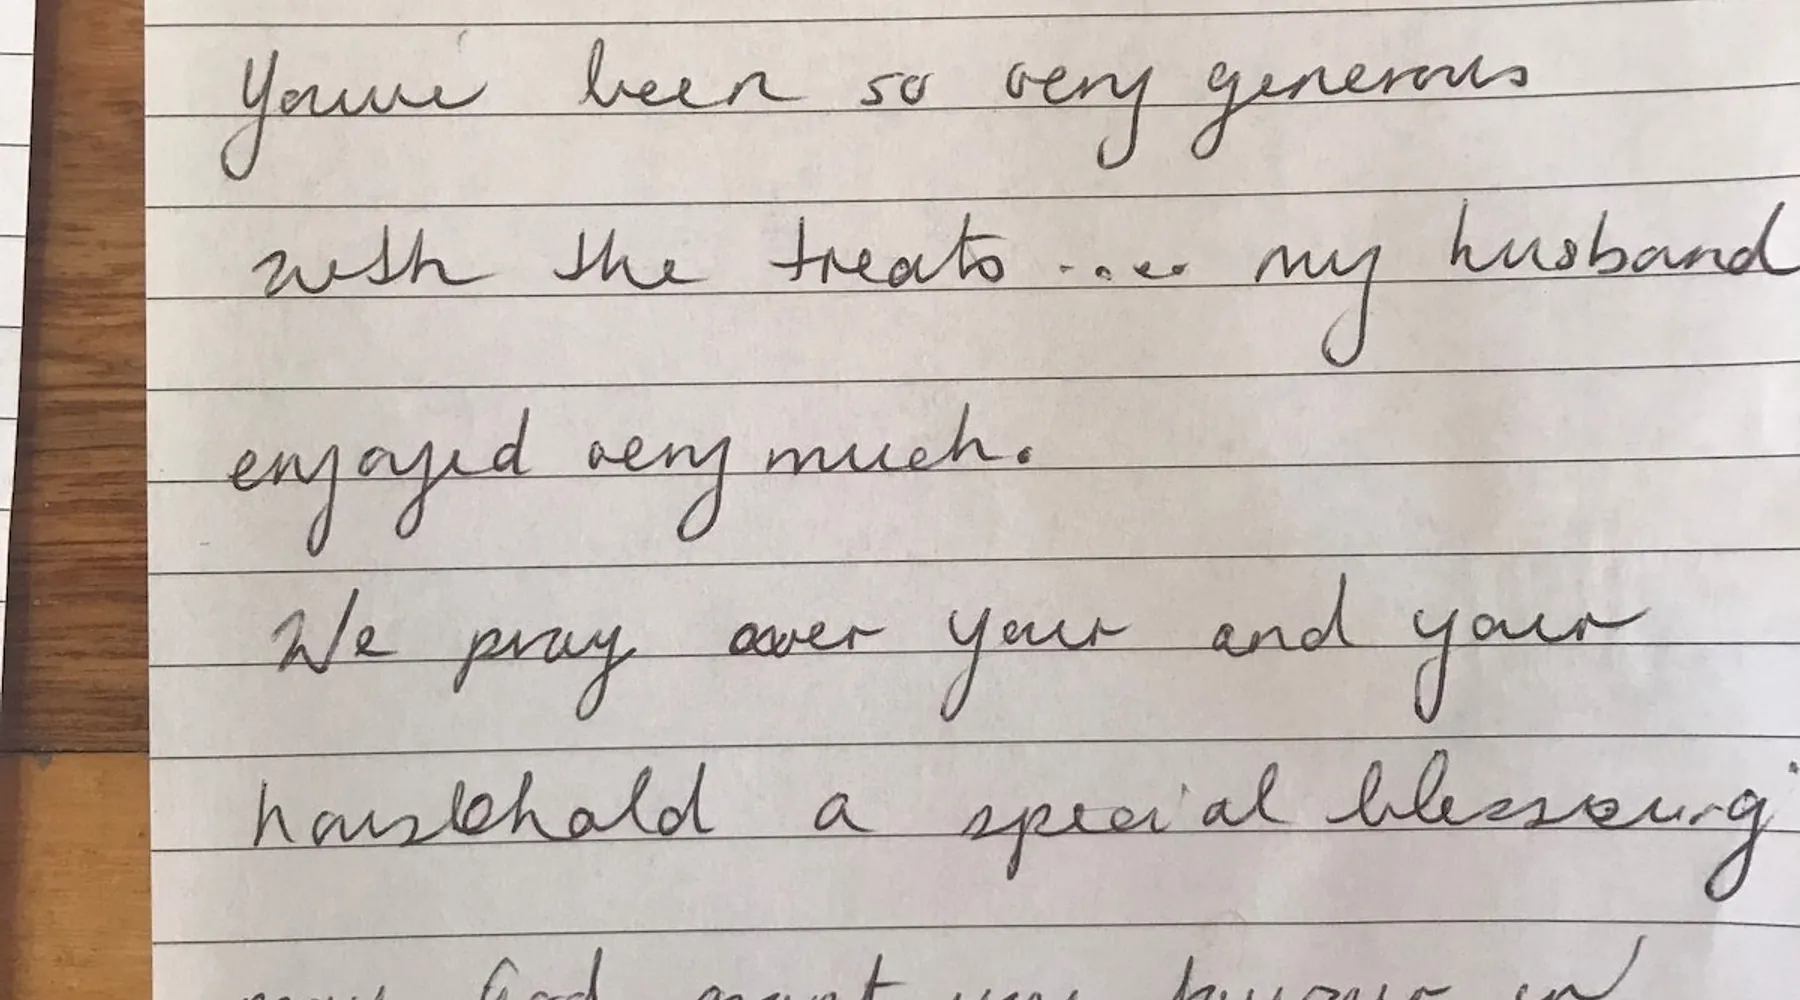 You've been so very generous
with the treats .... my husband
enjoyed very much.
We pray over your and your
household a special blessing
may God grant you favour in